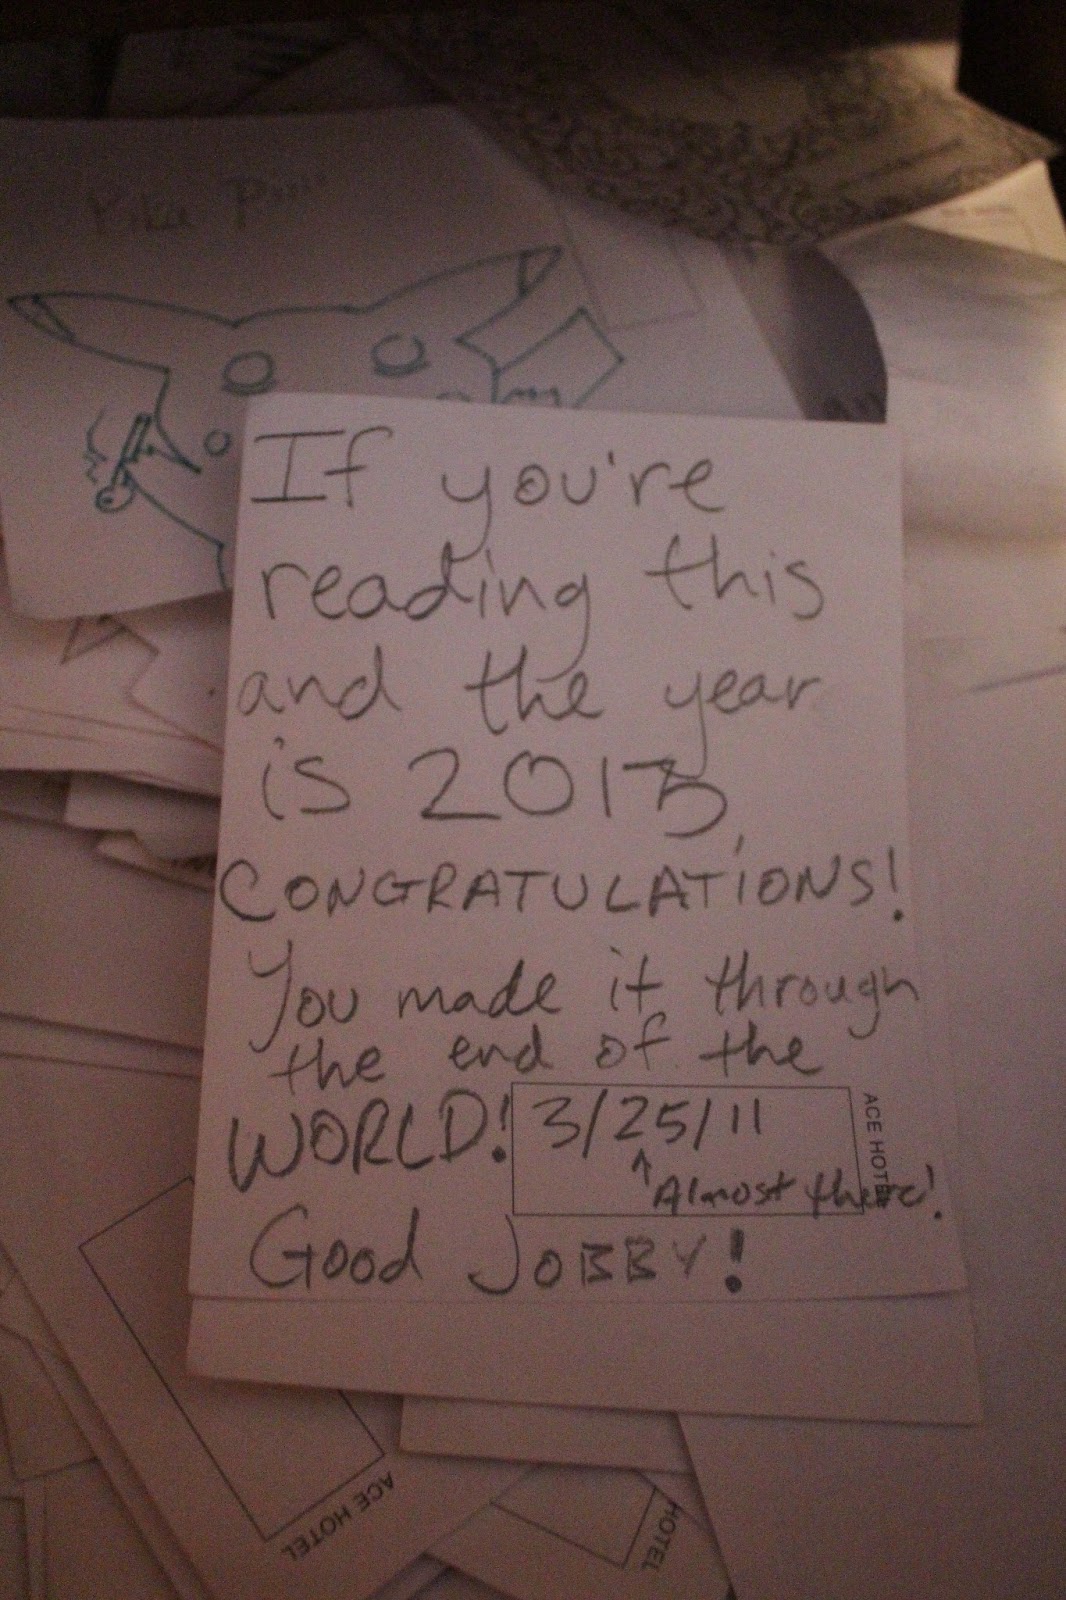 Pika
If you're
reading this
and the year
is 2013,
CONGRATULATIONS!
You made it through
the end of the
WORLD!
3/25/11
Almost there!
ACE HOTEL
Good JOBBY!
ACE HOTEL
HOTEL